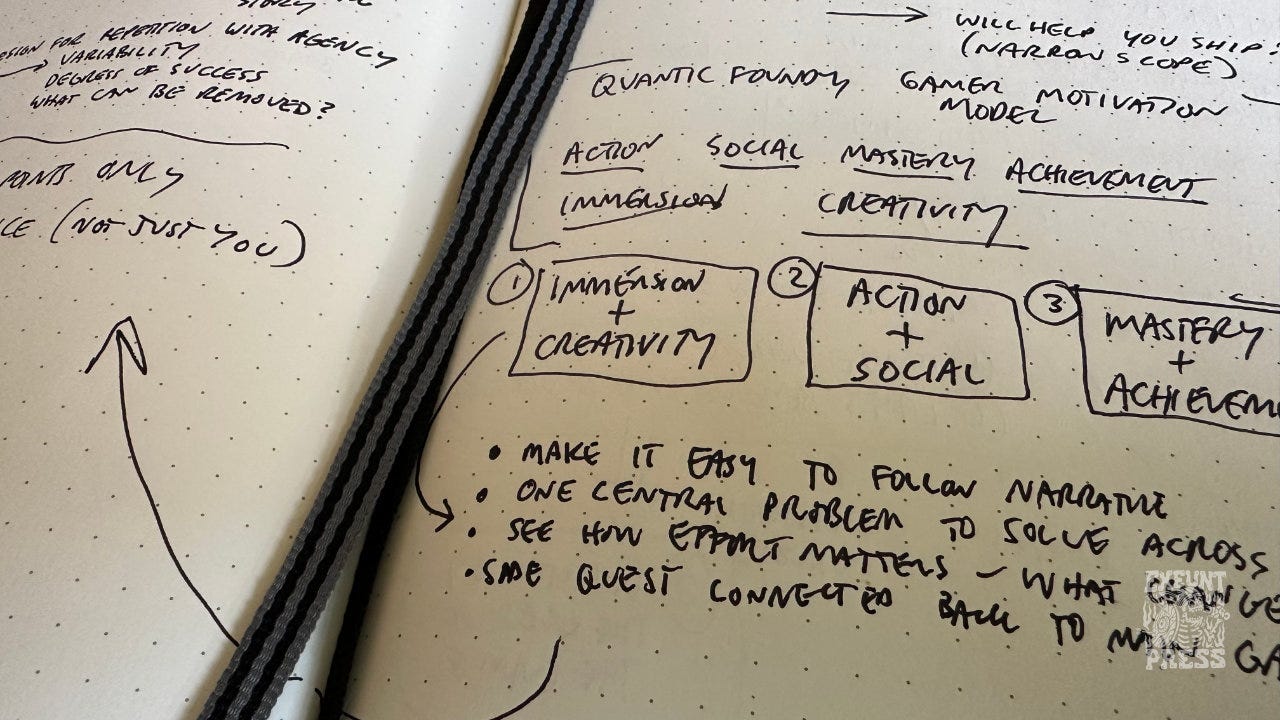 STORY
FOR REPETITION WITH AGENCY
→ VARIABILITY
DEGREE OF SUCCESS
WHAT CAN BE REMOVED?
ONLY
(NOT JUST YOU)
→ WILL HELP YOU SHIP!
(NARROW SCOPE)
QUANTIC FOUNDRY GAMER MOTIVATION
MODEL
ACTION SOCIAL MASTERY ACHIEVEMENT
IMMERSION CREATIVITY
1 IMMERSION
+
CREATIVITY
2 ACTION
+
SOCIAL
3 MASTERY
+
ACHIEVEM
• MAKE IT EASY TO FOLLOW NARRATIVE
• ONE CENTRAL PROBLEM TO SOLVE ACROSS
• SEE HOW EFFORT MATTERS – WHAT CHANGE
• SIDE QUEST CONNECTED BACK TO MAIN GA
EXEUNT
PRESS